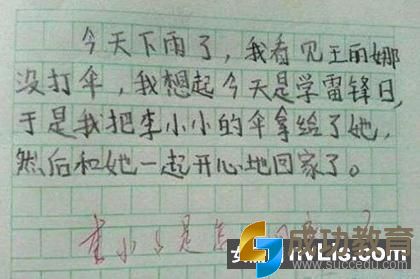 今天下雨了，我看见王丽娜
没打伞，我想起今天是学雷锋日，
于是我把李小小的伞拿给了她，
然后和她一起开心地回家了。
李小小是怎
成功教育
www.cgjyedu.com